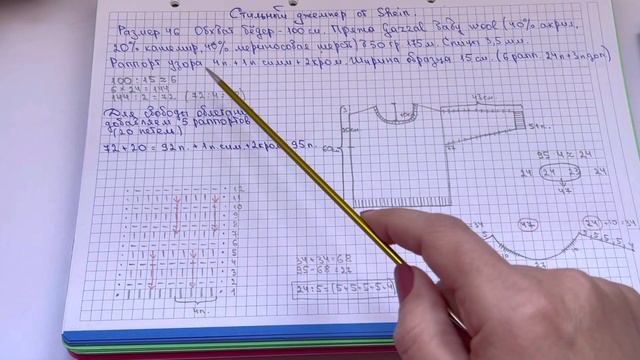 Стильный джемпер от Shein.
Размер 46 Обхват бедер - 100 см. Пряжа Gazzal Baby wool (40% акрил,
20% кашемир, 40% мериносовая шерсть) в 50 гр. 175 м. Спицы 3,5 мм.
Раппорт узора 4п + 1п симм + 2кром. Ширина образца 15 см. (6 рапп. 24п+3п доп)
100 : 15 ≈ 6
6 × 24 = 144
144 : 2 = 72 (72 : 4 =
Для свободы облегания
добавляем 5 раппортов
(20 петель).
72 + 20 = 92п. + 1п сим + 2кром 95п.
43см
60см
51п.
95 - 4 ≈ 24
24 24 23 24
47
12
11
10
9
8
7
6
5
4
3
2
1
4п.
34+34=68
95-68=27
24:5=(5+5+5+5+4)
34
47